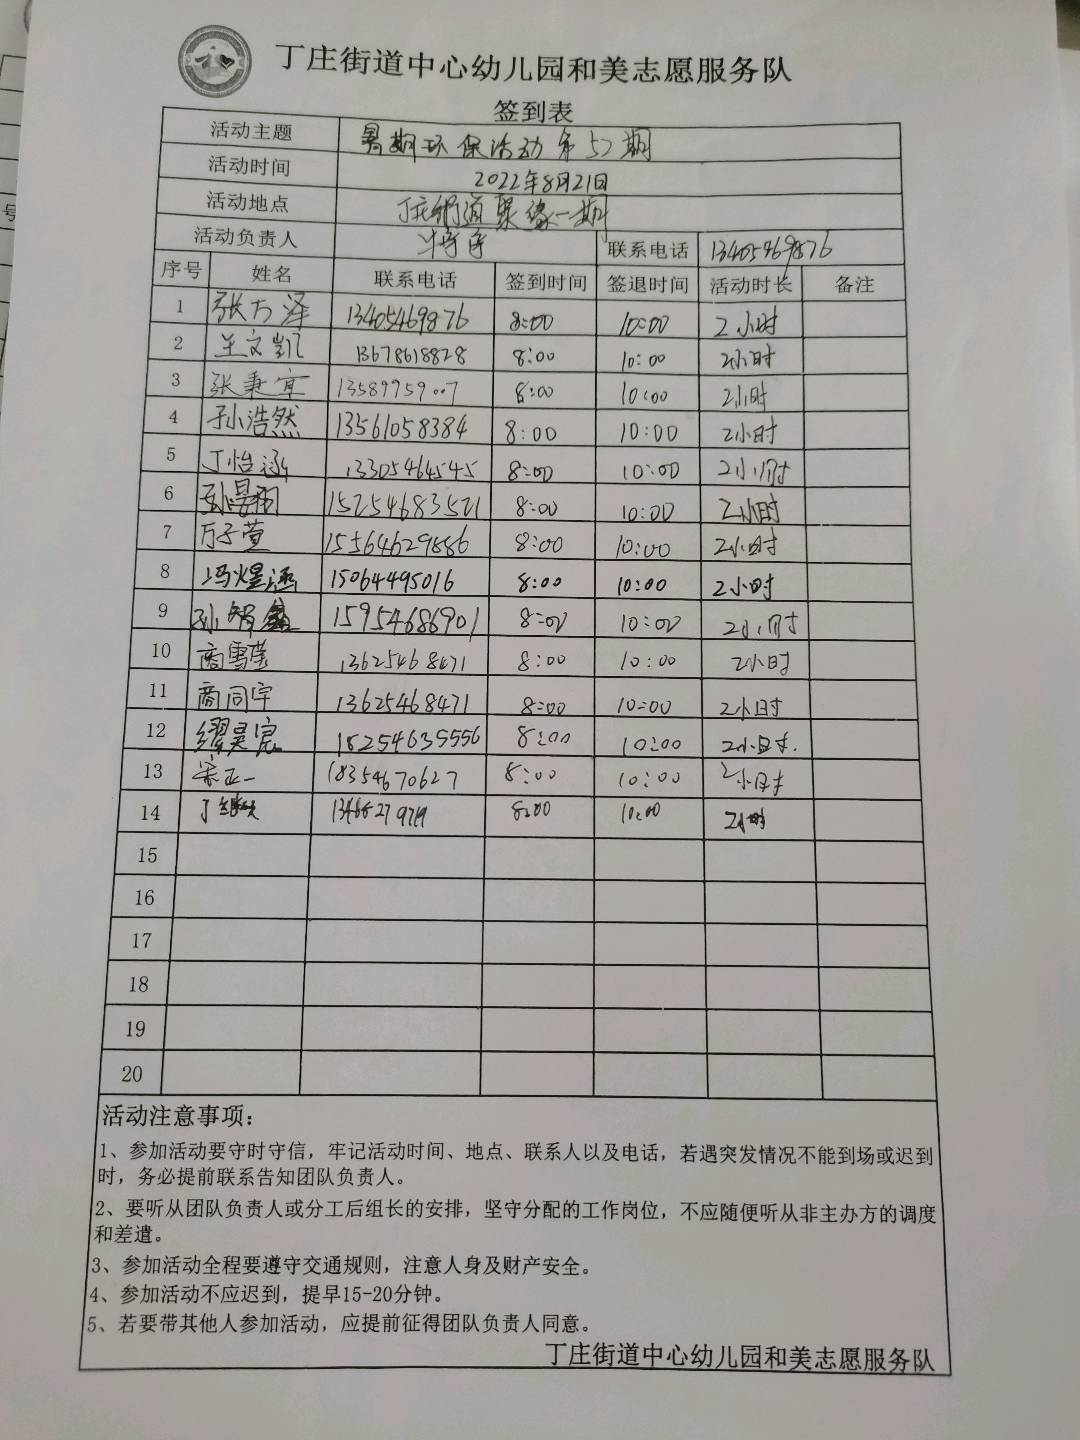 丁庄街道中心幼儿园和美志愿服务队
签到表
活动主题 暑期环保活动第52期
活动时间 2022年8月21日
活动地点 丁庄街道聚缘一期
活动负责人 联系电话 13405469876
序号 姓名 联系电话 签到时间 签退时间 活动时长 备注
1 张方泽 13405469876 8:00 10:00 2小时
2 王文凯 13678618828 8:00 10:00 2小时
3 张秉宜 13589959007 8:00 10:00 2小时
4 孙浩然 13561058384 8:00 10:00 2小时
5 丁怡涵 13305464545 8:00 10:00 2小时
6 15254683521 8:00 10:00 2小时
7 万子萱 15564629886 8:00 10:00 2小时
8 冯煜涵 15064495016 8:00 10:00 2小时
9 孙智鑫 15954686901 8:00 10:00 2小时
10 商雪莹 13625468471 8:00 10:00 2小时
11 商同宇 13625468471 8:00 10:00 2小时
12 18254635556 8:00 10:00 2小时.
13 宋正一 18354670627 8:00 10:00 2小时
14 8:00 10:00 2小时
15
16
17
18
19
20
活动注意事项:
1、参加活动要守时守信，牢记活动时间、地点、联系人以及电话，若遇突发情况不能到场或迟到
时，务必提前联系告知团队负责人。
2、要听从团队负责人或分工后组长的安排，坚守分配的工作岗位，不应随便听从非主办方的调度
和差遣。
3、参加活动全程要遵守交通规则，注意人身及财产安全。
4、参加活动不应迟到，提早15-20分钟。
5、若要带其他人参加活动，应提前征得团队负责人同意。
丁庄街道中心幼儿园和美志愿服务队